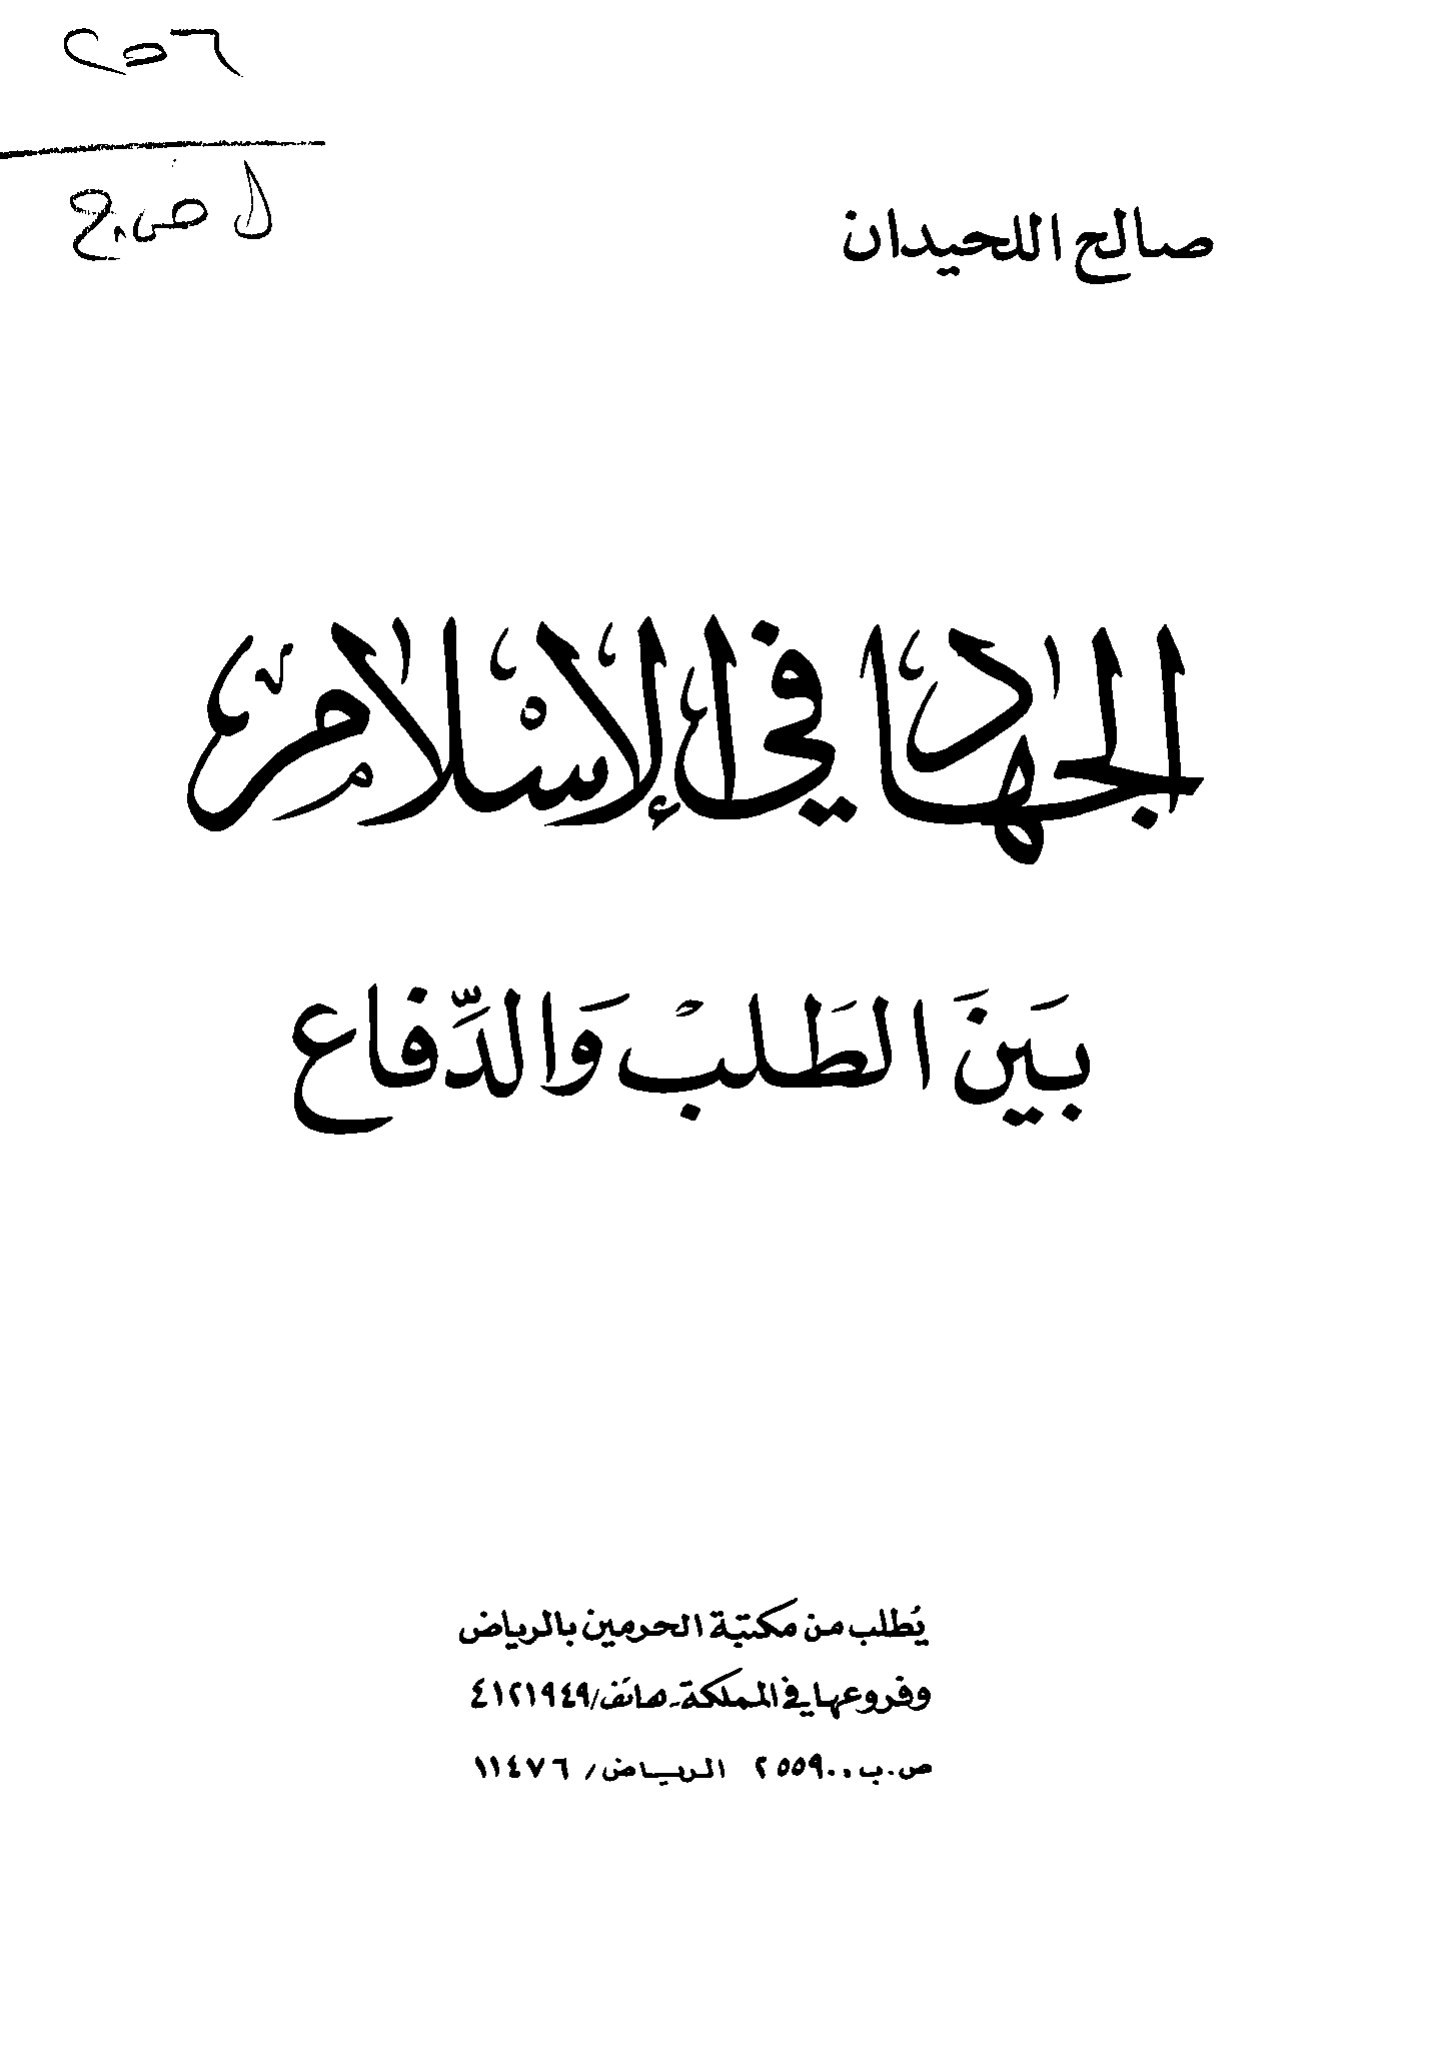 ٢٥٦
ل ص.ج
صالح اللحيدان
الجهاد في الإسلام
بَينَ الطَلبْ وَالدِّفاع
يُطلب من مكتبة الحرمين بالرياض
وفروعها في المملكة ـ هاتف/٤١٢١٩٤٩
ص.ب.. ٢٥٥٩٠ الرياض/ ١١٤٧٦